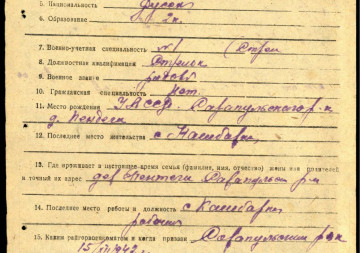 5. Национальность русск
4. Образование 2 к.
7. Военно-учетная специальность №1
8. Должностная квалификация Стрелок
9. Военное звание рядов
10. Гражданская специальность нет.
11. Место рождения УАССР. Сарапульского р-н
д. Пентеги
12. Последнее место жительства с
13. Где проживает в настоящее время семья (фамилия, имя, отчество) жены или родителей
и точный их адрес дер Пентеги Сарапульск р-н
14. Последнее место работы и должность с
рабочий
15. Каким райгорвоенкоматом и когда призван Сарапульским